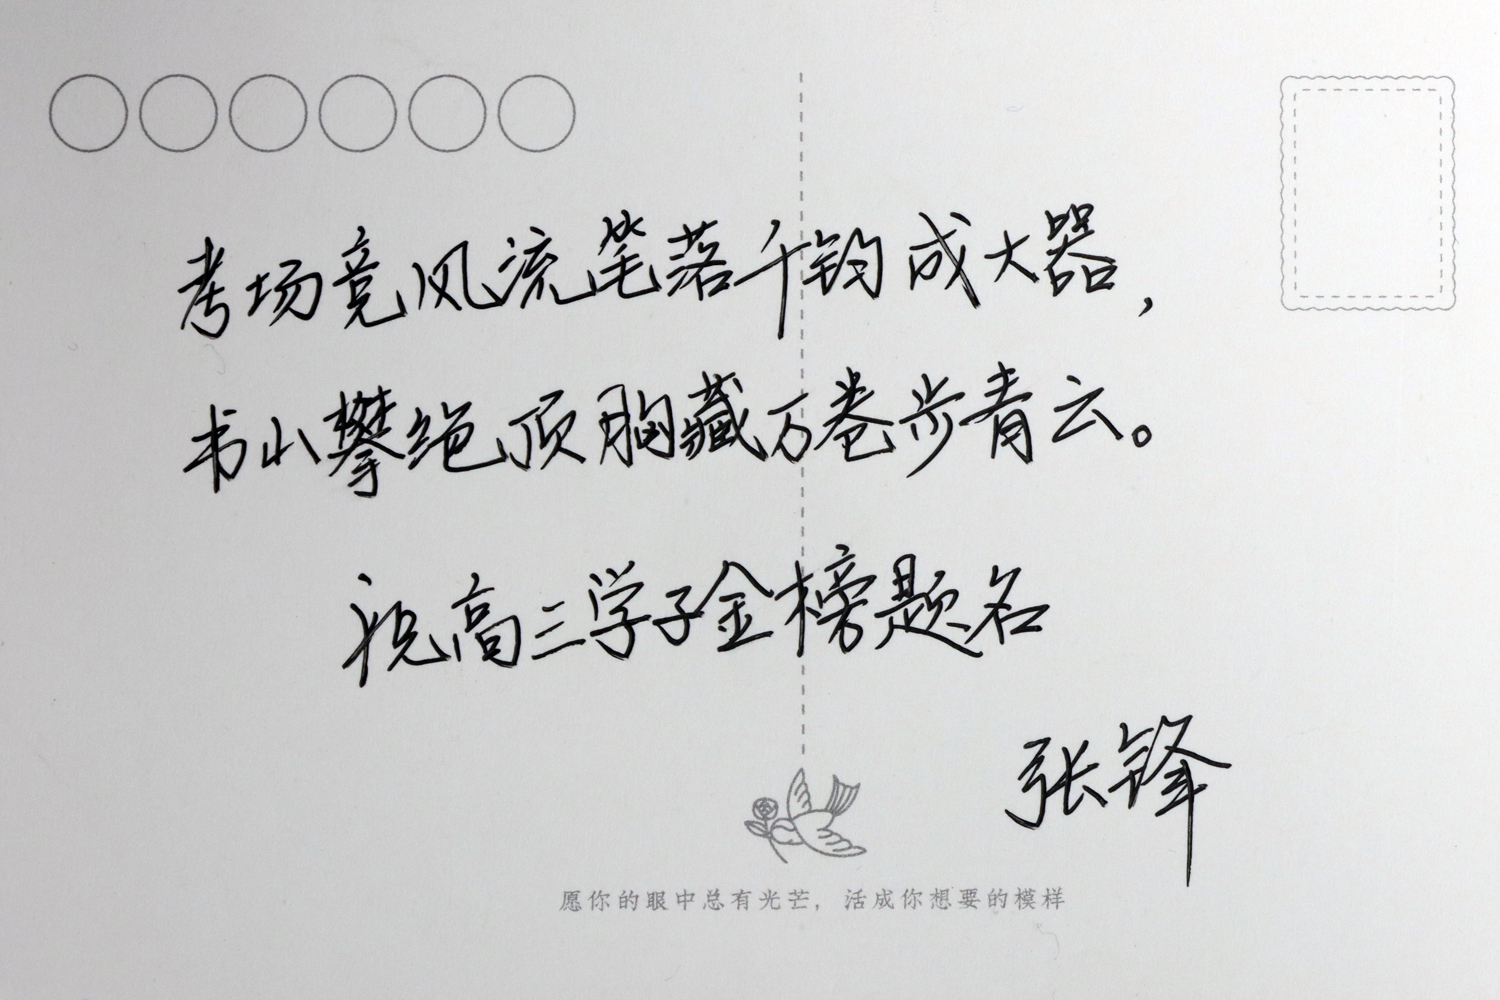 考场竞风流笔落千钧成大器，
书山攀绝顶胸藏万卷步青云。
祝高三学子金榜题名
张锋
愿你的眼中总有光芒，活成你想要的模样